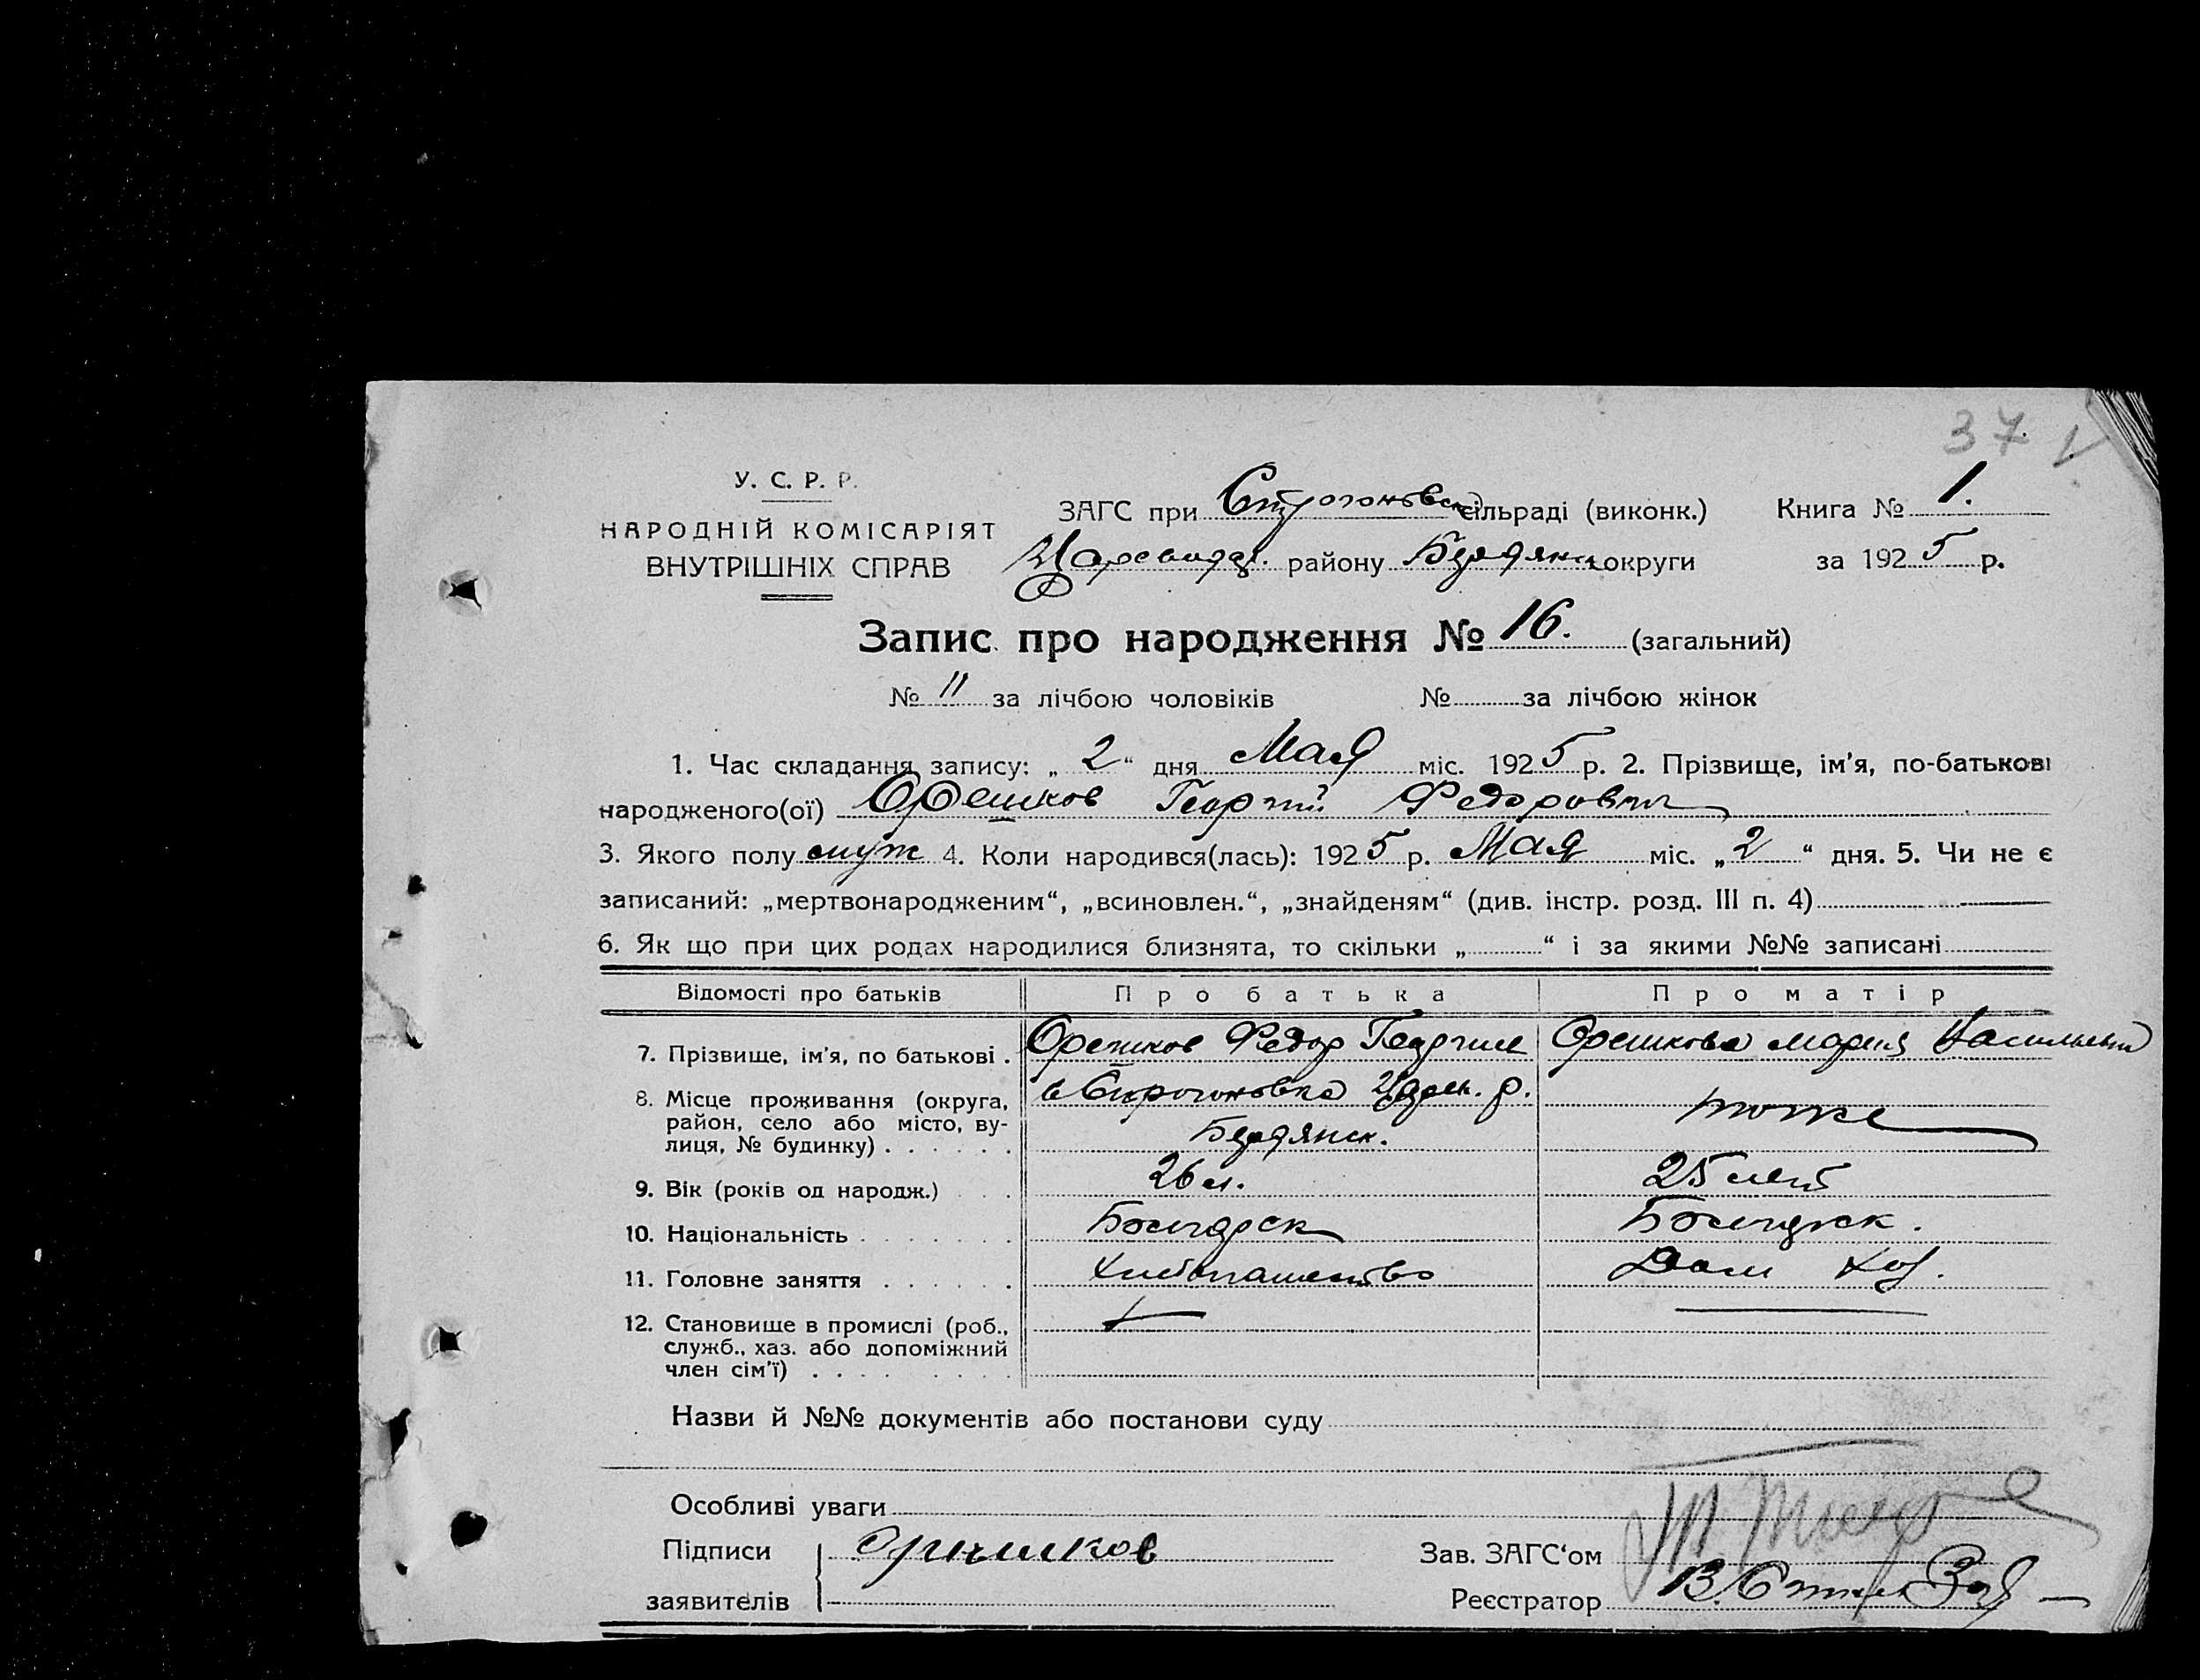 37
У. С. Р. Р.
НАРОДНІЙ КОМІСАРІЯТ
ВНУТРІШНІХ СПРАВ
ЗАГС при Строгоновск сільраді (виконк.) Книга № 1.
району Бердянск округи за 1925 р.
Запис про народження № 16. (загальний)
№ 11 за лічбою чоловіків № за лічбою жінок
1. Час складання запису: „ 2 “ дня Мая міс. 1925 р. 2. Прізвище, ім'я, по-батькові
народженого(ої) Орешков Георгий Федорович
3. Якого полу муж 4. Коли народився(лась): 1925 р. Мая міс. „ 2 “ дня. 5. Чи не є
записаний: „мертвонародженим“, „всиновлен.“, „знайденям“ (див. інстр. розд. III п. 4)
6. Як що при цих родах народилися близнята, то скільки „ “ і за якими №№ записані
Відомості про батьків Про батька Про матір
7. Прізвище, ім'я, по батькові . Орешков Федор Георгие Орешкова Мария Васильевн
8. Місце проживання (округа, район, село або місто, вулиця, № будинку) . . . . . . с Строгоновка р. Бердянск. тоже
9. Вік (років од народж.) . . 26 л. 25 лет
10. Національність . . . . . . . Болгарск Болгарск.
11. Головне заняття . . . . . . Хлебопашество Дом Хоз.
12. Становище в промислі (роб., служб., хаз. або допоміжний член сім'ї) . . . . . . . . .
Назви й №№ документів або постанови суду
Особливі уваги
Підписи Орешков Зав. ЗАГС'ом
заявителів Реєстратор